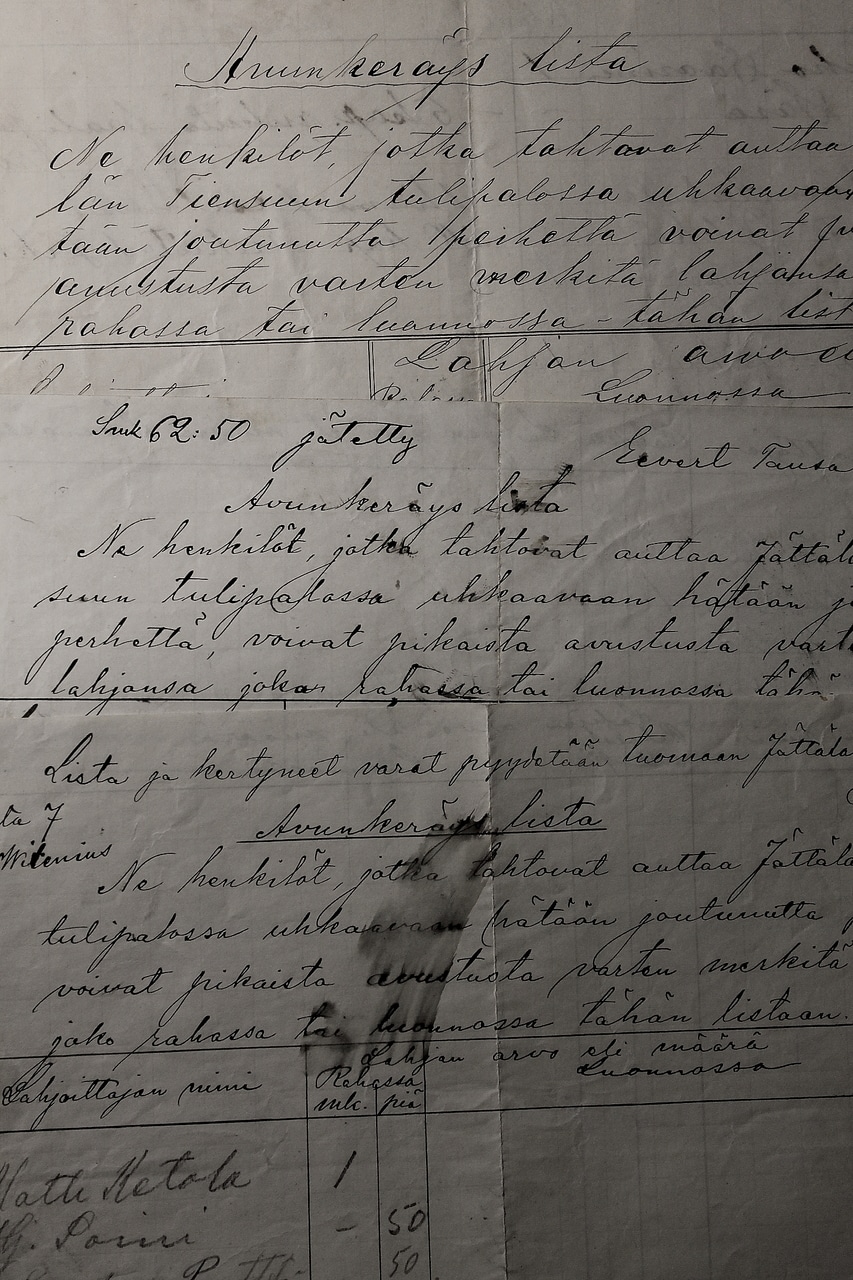 Avunkeräys lista
Ne henkilöt, jotka tahtovat auttaa
län Tiensuun tulipalossa uhkaavaan
tään joutunutta perhettä voivat
avustusta varten merkitä lahjansa
rahassa tai luonnossa - tähän list
Lahjan arvo
Luonnossa
Smk 62:50 jätetty
Eevert Tausa
Avunkeräys lista
Ne henkilöt, jotka tahtovat auttaa Jättäl
suun tulipalossa uhkaavaan hätään j
perhettä, voivat pikaista avustusta vart
lahjansa joko rahassa tai luonnossa tähä
Lista ja kertyneet varat pyydetään tuomaan Jättälä
ta 7
Witenius
Avunkeräys lista
Ne henkilöt, jotka tahtovat auttaa Jättälä
tulipalossa uhkaavaan hätään joutunutta
voivat pikaista avustusta varten merkitä
joko rahassa tai luonnossa tähän listaan.
Lahjan arvo eli määrä
Lahjoittajan nimi Rahassa Luonnossa
mk. piä
Matti Ketola 1
- 50
50